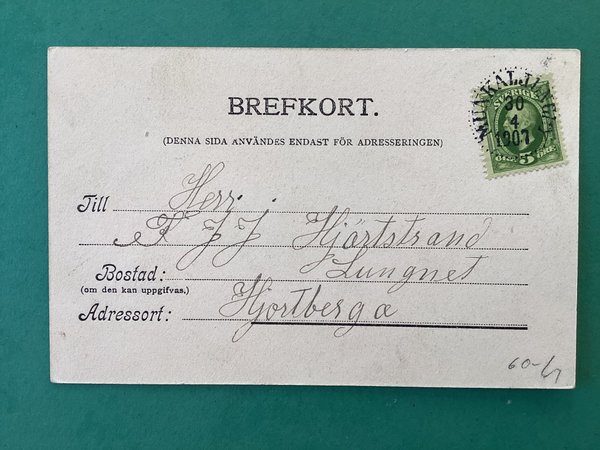 BREFKORT.
(DENNA SIDA ANVÄNDES ENDAST FÖR ADRESSERINGEN)
SVERIGE
5
ÖRE
30
4
1907
Till Herr
F J J Hjärtstrand
Lungnet
Bostad:
(om den kan uppgifvas.)
Adressort: Hjortberga
60-